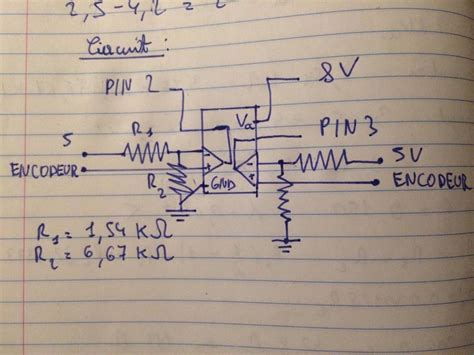 2,5-4,2 = 2
Circuit :
PIN 2
8V
Va
PIN 3
5
R1
5V
ENCODEUR
R2
GND
ENCODEUR
R1 = 1,54 KΩ
R2 = 6,67 KΩ